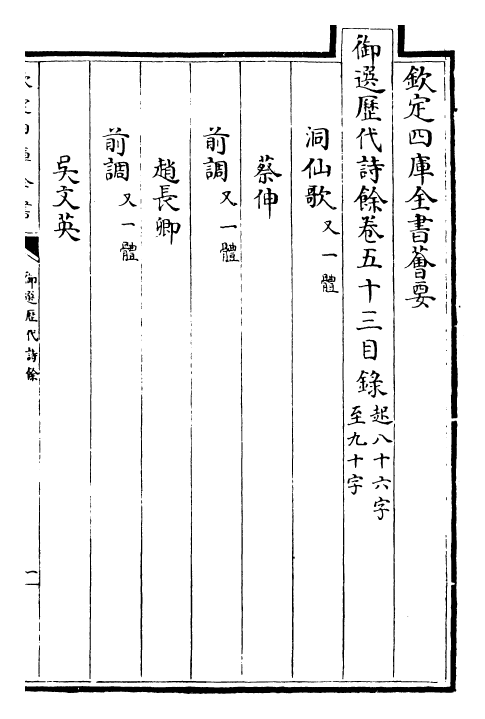 欽定四庫全書薈要
御選歷代詩餘卷五十三目錄起八十六字
至九十字
洞仙歌又一體
蔡伸
前調又一體
趙長卿
前調又一體
吳文英
御選歷代詩餘
一